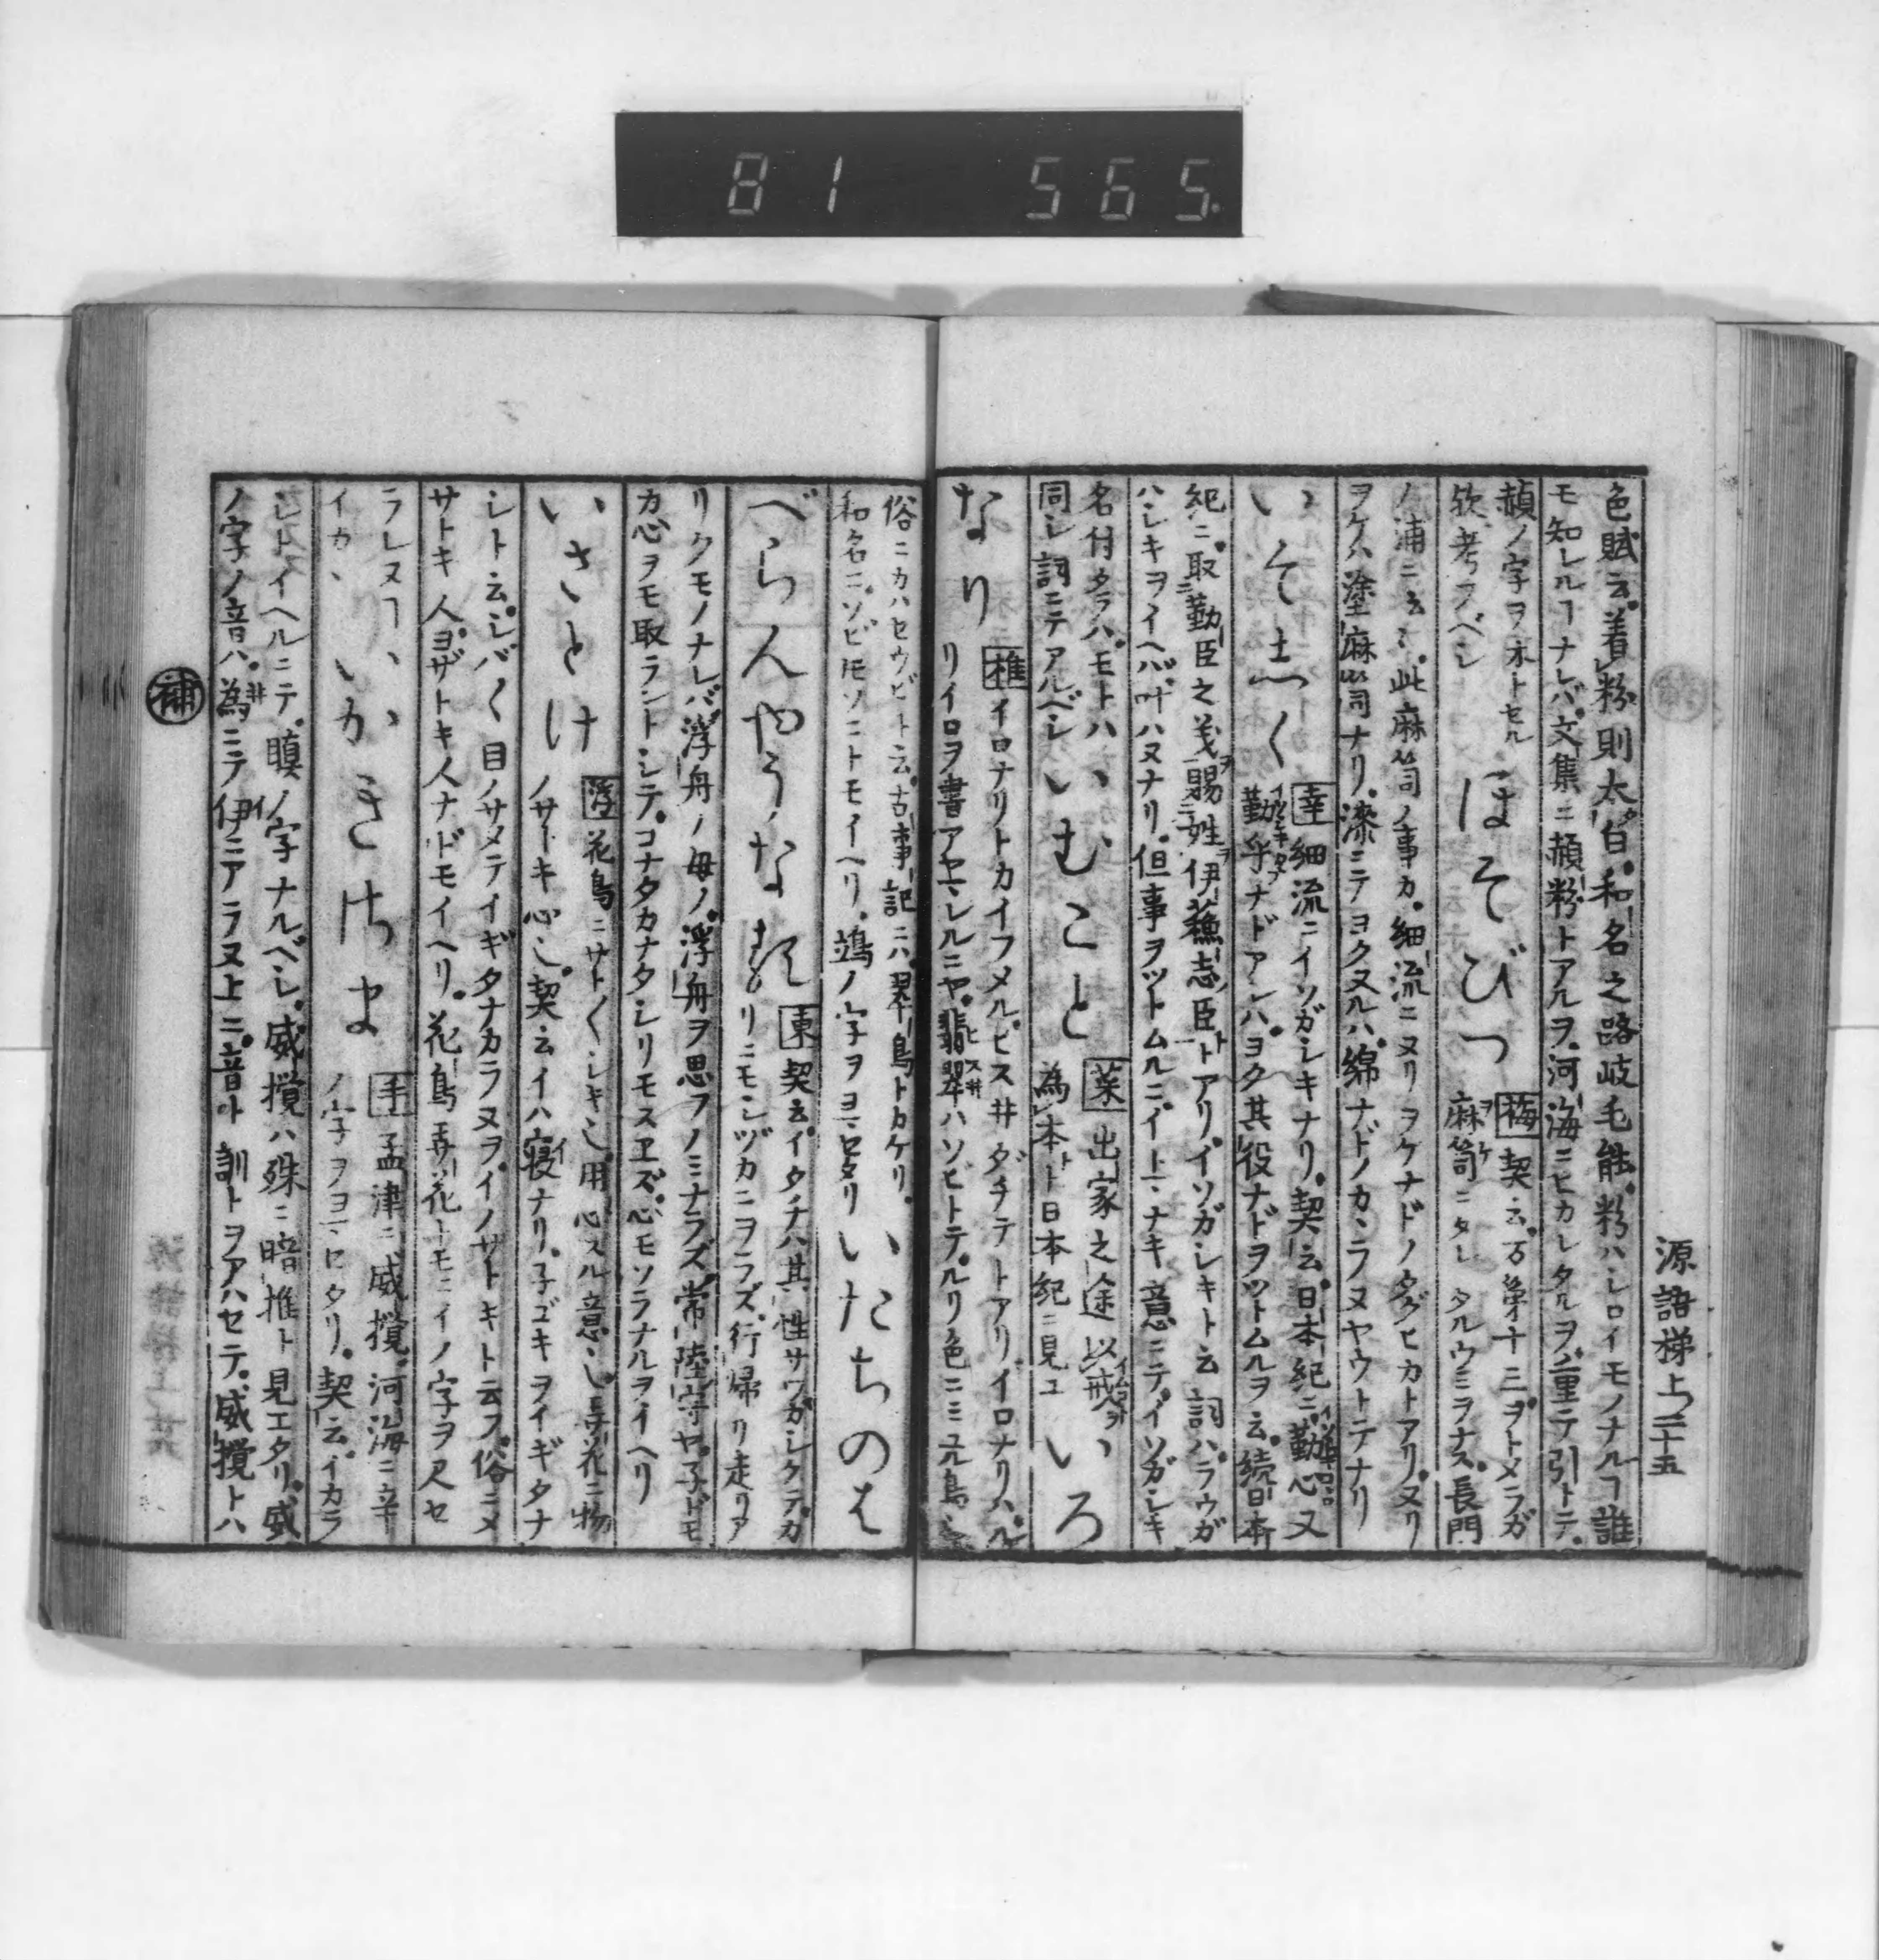 81 565
源語梯上 三十五
色賦云。着粉則太白。和名之路岐毛能。粉ハシロイモノナルヿ誰
モ知レルヿナレバ。文集ニ頳粉トアルヲ。河海ニヒカレタルヲ。二重ニテ引トテ。
頳ノ字ヲ
欤。考フベシ
ほそびつ
梅 契云。万葉十三。ヲトメラガ
麻笥ニタレタルウミヲナス。長門
ノ浦ニ云々。此麻笥ノ事カ。細流ニヌリヲケナドノタグヒカトアリ。ヌリ
ヲケハ塗麻笥ナリ。漆ニテヨクヌルハ。綿ナドノカヽラヌヤウトテナリ
いそしく
幸 細流ニイソガシキナリ。契云。日本紀ニ勤心又
勤乎ナドアレハ。ヨク其役ナドヲツトムルヲ云。続日本
紀ニ。取勤臣之義賜姓伊蘓志臣トアリ。イソガシキト云詞ハ。ラウガ
ハシキヲイヘバ。叶ハヌナリ。但事ヲツトムルニ。イトマナキ意ニテ。イソガシキ
名付タラハ。モトハ
同シ詞ニテアルベシ
いむこと
菜 出家之途以戒
為本ト日本紀ニ見ユ
いろ
なり
椎 イロナリトカイフメル。ヒスヰダチテトアリ。イロナリハ。ル
リイロヲ書アヤマレルニヤ。翡翠ハソビトテ。ルリ色ニミユル鳥也
俗ニカハセウビト云。古事記ニハ。翠鳥トカケリ。
和名ニ。ソビトモソニトモイヘリ。鴗ノ字ヲヨマセタリ
いたちのは
べらんやうなる
東 契云。イタチハ其性サワガシクテ。カ
リニモシヅカニヲラズ。行帰リ走リア
リクモノナレバ。浮舟ノ母ノ。浮舟ヲ思フノミナラズ。常陸守ヤ。子ドモ
カ心ヲモ取ラントシテ。コナタカナタシリモスヱズ。心モソラナルヲイヘリ
いさとけ
浮 花鳥ニサト〳〵シキ也。用心スル意也。弄花ニ物
ノサトキ心也。契云イハ寝ナリ。子ゴキヲイギタナ
シト云。シバ〳〵目ノサメテイギタナカラヌヲ。イノサトキト云フ。俗ニメ
サトキ人。ヨザトキ人ナドモイヘリ。花鳥弄花トモニイノ字ヲ尺セ
ラレヌヿ
イカヽ
いかきさま
手 孟津ニ威攪。河海ニ
ノ字ヲヨマセタリ。契云。イカラ
シトイヘルニテ。瞋ノ字ナルベシ。威攪ハ殊ニ暗推ト見エタリ。威
ノ字ノ音ハ。為ニテ伊ニアラヌ上ニ。音ト訓トヲアハセテ。威攪トハ
補